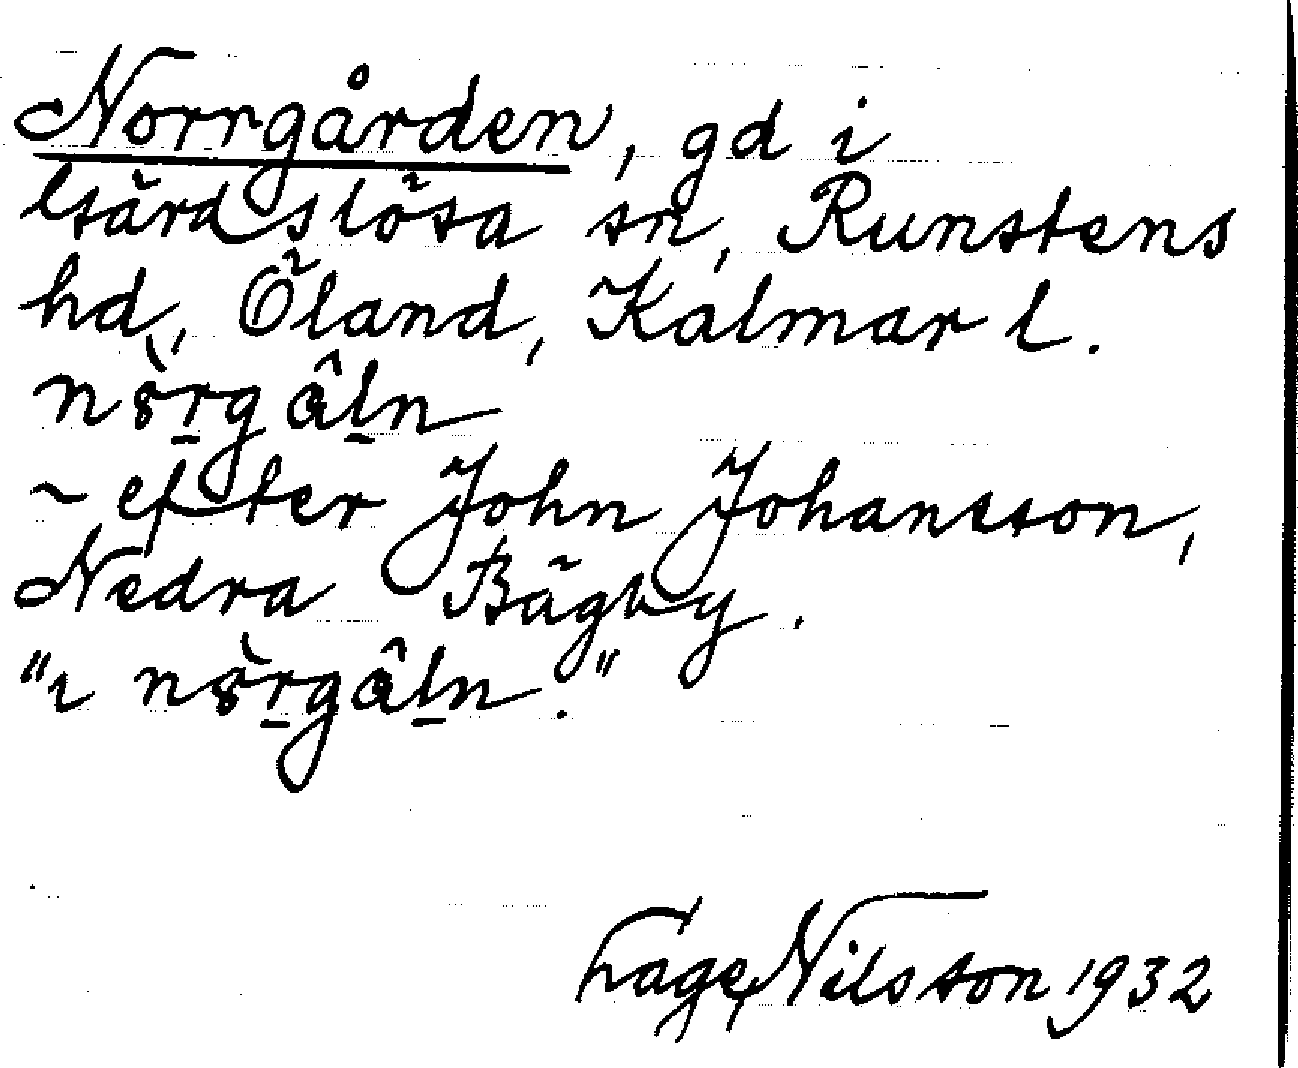 Norrgården, gd i
Gärdslösa sn, Runstens
hd, Öland, Kalmar l.
~ efter John Johansson,
Nedra Bägby.
Tage Nilsson 1932